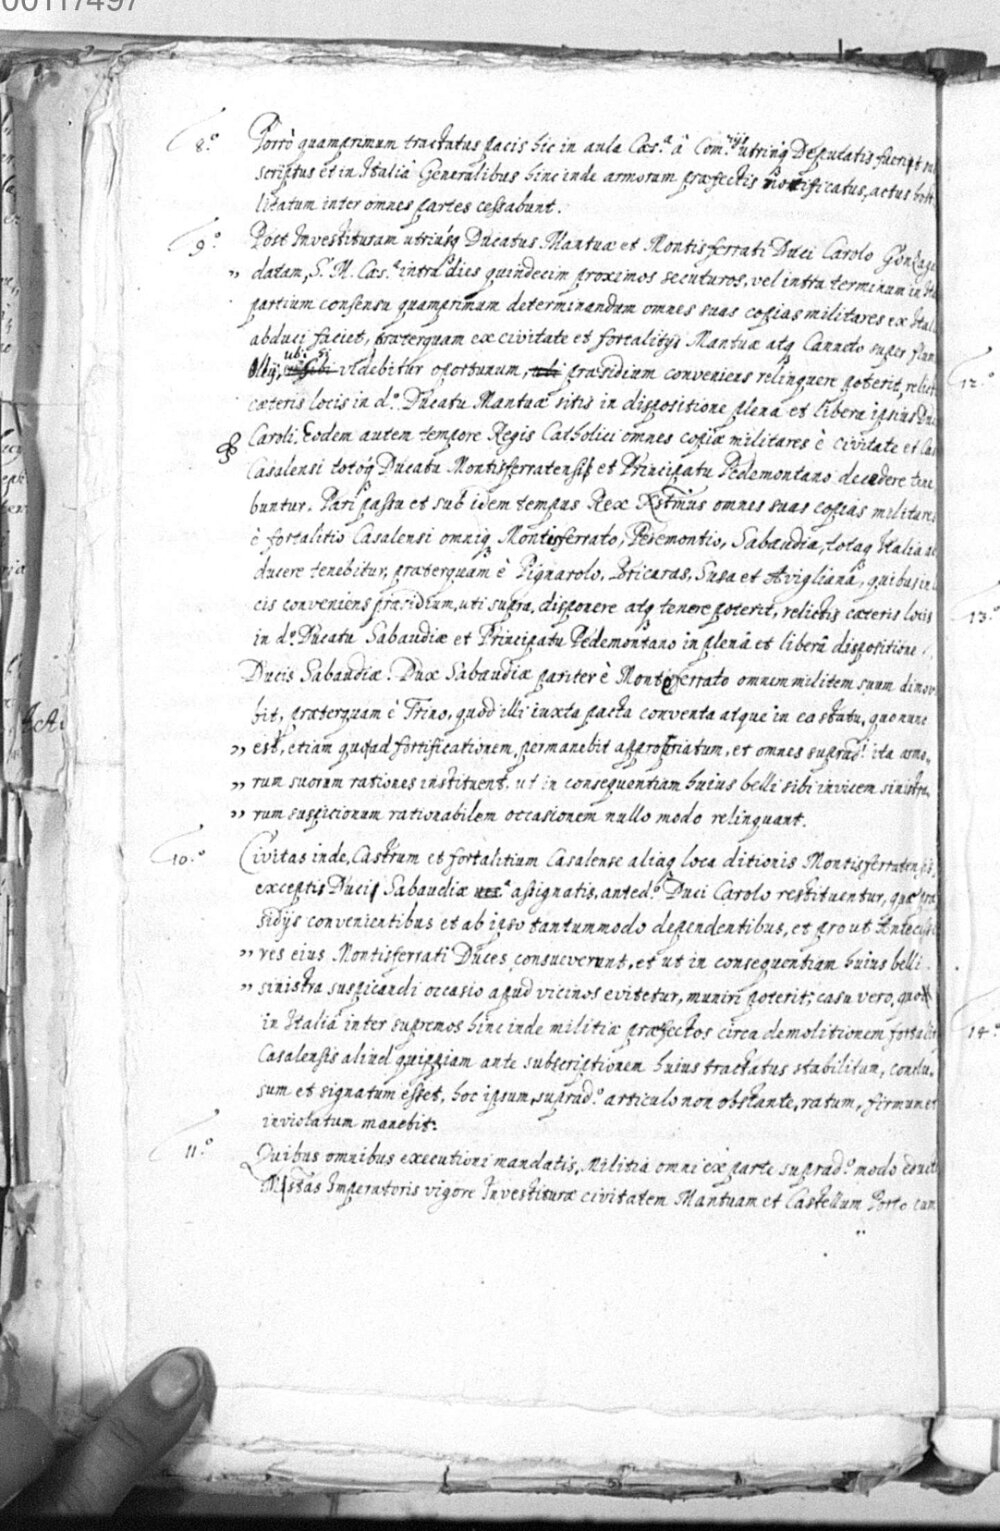 00117497
8.° Porrò quamprimum tractatus pacis hic in aula Cæs.ᵃ â Com.ʳⁱʲˢ utrinq Deputatis fuerit su
scriptus et in Italiâ Generalibus hinc inde armorum præfectis notificatus, actus hosti
litatum inter omnes partes cessabunt.
9.° Post Investituram utriusq Ducatus Mantuæ et Montisferrati Duci Carolo Gonzage
„ datam, S. M. Cæs.ᵃ intra dies quindecim proximos secuturos, vel intra terminum in
partium consensu quamprimum determinandum omnes suas copias militares ex Ital
abduci faciet, præterquam ex civitate et fortalitijs Mantuæ atq Canneto super flum
Ollij, ubi si videbitur oportunum, ubi præsidium conveniens relinquere poterit, relict
cæteris locis in d.° Ducatu Mantuæ sitis in dispositione plena et libera ipsius Du
Caroli. Eodem autem tempore Regis Catholici omnes copiæ militares è civitate et Cas
Casalensi totoq Ducatu Montisferratensi, et Principatu Pedemontano decedere tene
buntur. Pari passu et sub idem tempus Rex Xstmus omnes suas copias militares
è fortalitio Casalensi omniq Montisferrato, Pedemontio, Sabaudia, totaq Italia ab
ducere tenebitur, præterquam è Pignarolo, Bricaras, Susa et Avigliana, quibus in l
cis conveniens præsidium, uti supra, disponere atq tenere poterit, relictis cæteris locis
in d.° Ducatu Sabaudiæ et Principatu Pedemontano in plenâ et liberâ dispositione
Ducis Sabaudiæ. Dux Sabaudiæ pariter è Monteferrato omnem militem suum dimov
bit, præterquam è Trino, quod illi iuxta pacta conventa atque in eo statu, quo nunc
„ est, etiam quoad fortificationem, permanebit appropriatum, et omnes suprad.ⁱ ita armo„
„ rum suorum rationes instituent, ut in consequentiam huius belli sibi invicem sinistra„
„ rum suspicionum rationabilem occasionem nullo modo relinquant.
10.° Civitas inde, Castrum et fortalitium Casalense aliaq loca ditionis Montisferratensis,
exceptis Duci Sabaudiæ assignatis, anted.° Duci Carolo restituentur, quæ præ
sidijs convenientibus et ab ipso tantummodo dependentibus, et prout Antecesso
„ res eius Montisferrati Duces consueverunt, et ut in consequentiam huius belli
„ sinistra suspicandi occasio apud vicinos evitetur, muniri poterit; casu vero, quo
in Italiâ inter supremos hinc inde militiæ præfectos circa demolitionem fortalit
Casalensis aliud quippiam ante subscriptionem huius tractatus stabilitum, conclu„
sum et signatum esset, hoc ipsum, suprad.° articulo non obstante, ratum, firmum et
inviolatum manebit.
11.° Quibus omnibus executioni mandatis, militiâ omni ex parte suprad.° modo educt
Mstas Imperatoris vigore Investituræ civitatem Mantuam et Castellum Porto cum
12.°
13.°
14.°